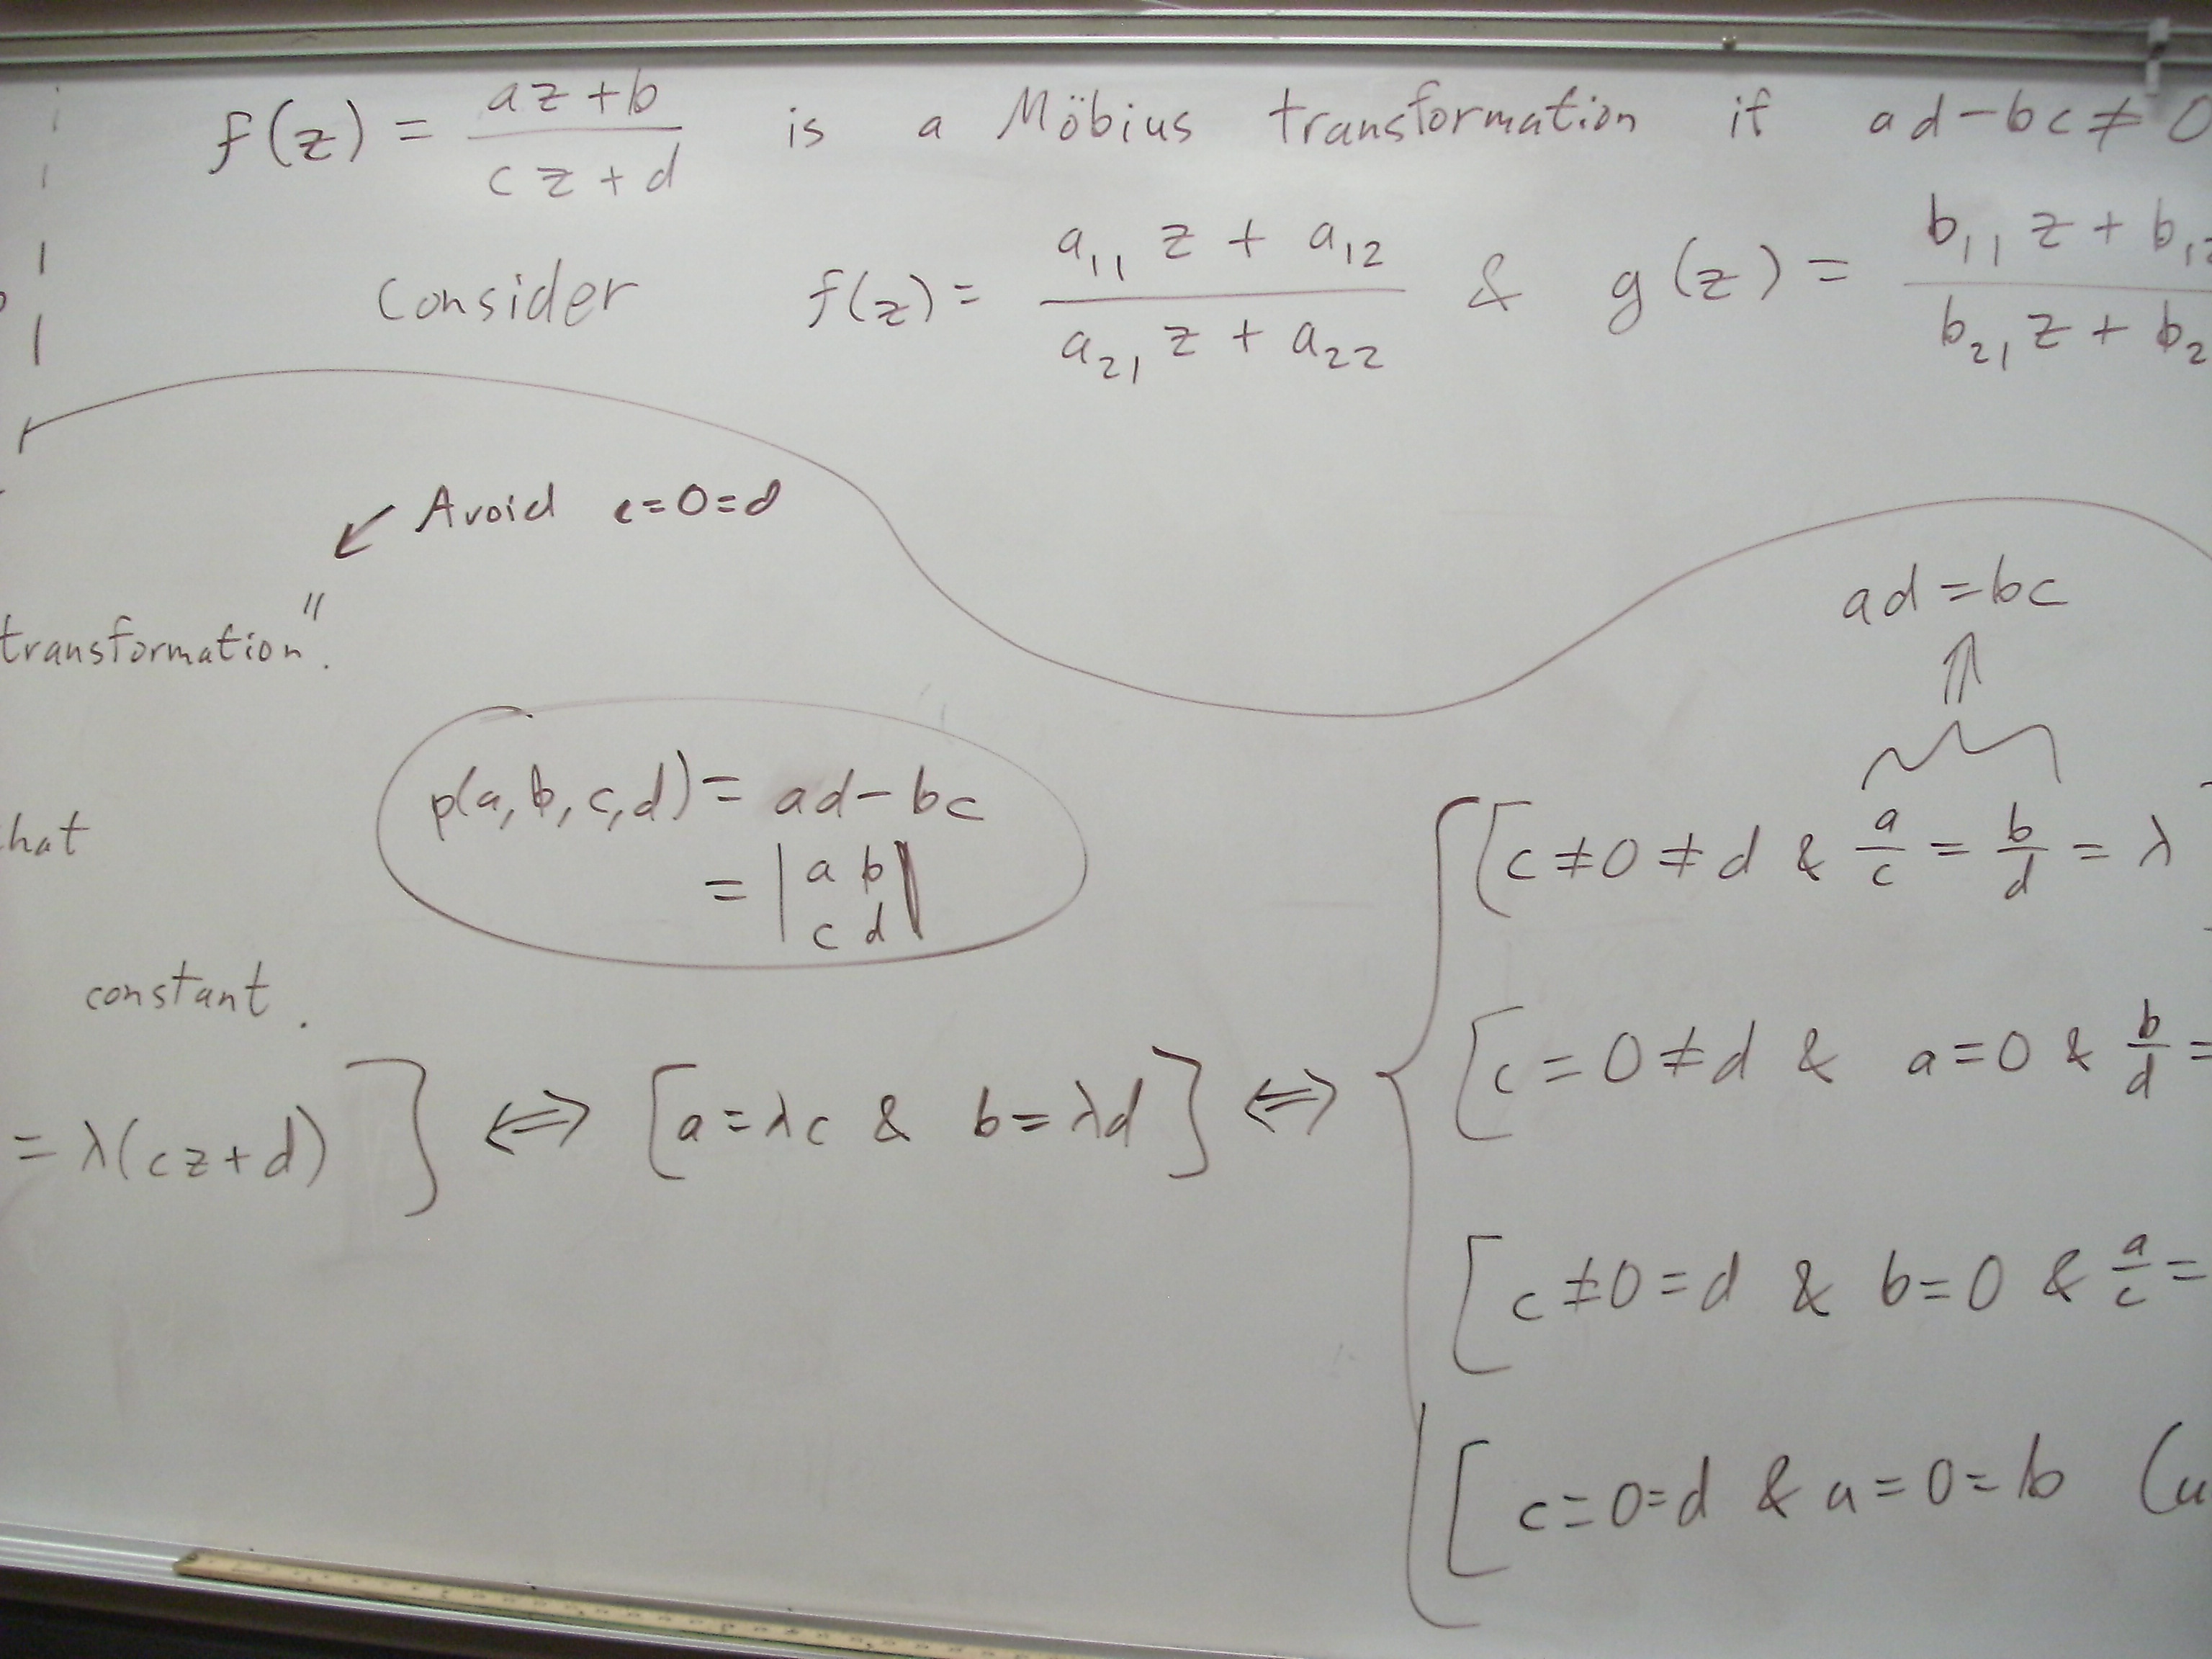 f(z) = (az+b)/(cz+d) is a Möbius transformation if ad-bc≠0
Consider f(z) = (a₁₁ z + a₁₂)/(a₂₁ z + a₂₂) & g(z) = (b₁₁ z + b₁₂)/(b₂₁ z + b₂
↙ Avoid c=0=d
transformation".
ad = bc
⇑
p(a, b, c, d) = ad - bc
= |a b; c d|
[c≠0≠d & a/c = b/d = λ
hat
constant.
[c = 0 ≠ d & a = 0 & b/d =
= λ(cz+d) ] ⇔ [a = λc & b = λd] ⇔ {
[c ≠ 0 = d & b = 0 & a/c =
[c = 0 = d & a = 0 = b (